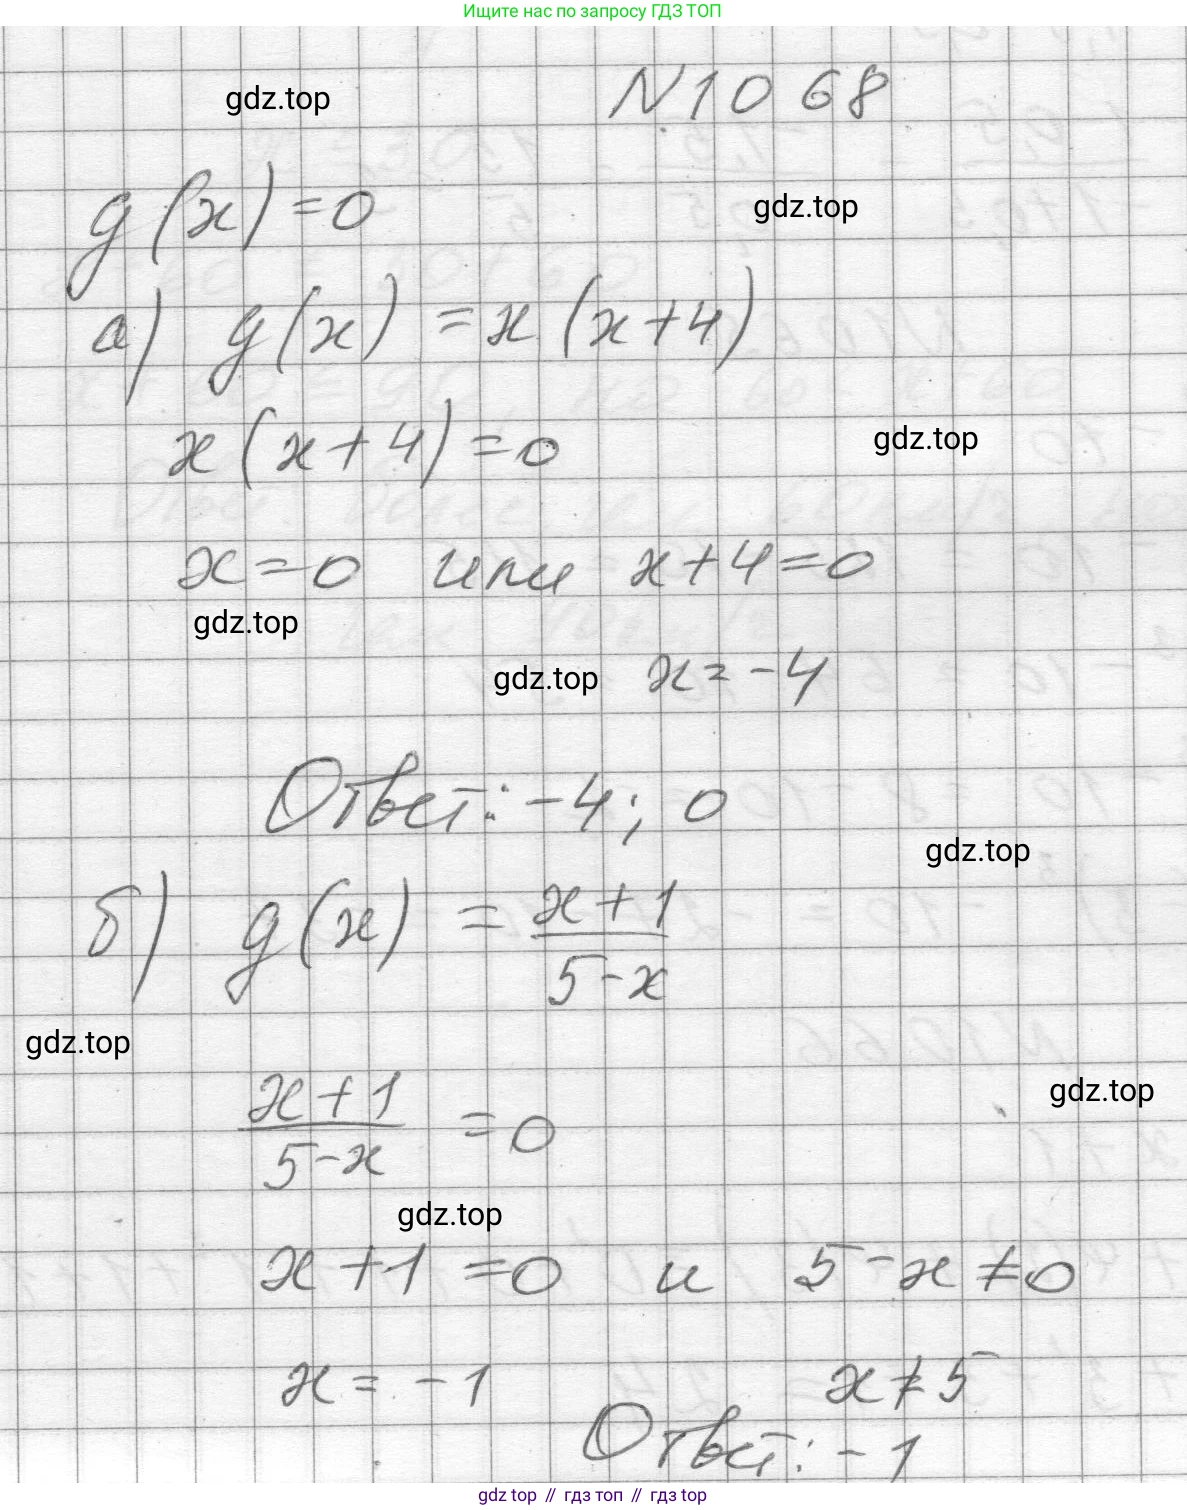 Ищите нас по запросу ГДЗ ТОП
gdz.top
N 1068
g(x) = 0
gdz.top
а) g(x) = x(x+4)
x(x+4) = 0
gdz.top
x = 0 или x+4 = 0
gdz.top
gdz.top
x = -4
Ответ: -4; 0
gdz.top
б) g(x) = \frac{x+1}{5-x}
gdz.top
gdz.top
\frac{x+1}{5-x} = 0
gdz.top
x+1 = 0 и 5-x ≠ 0
x = -1 x ≠ 5
Ответ: -1
gdz top // гдз топ // гдз top